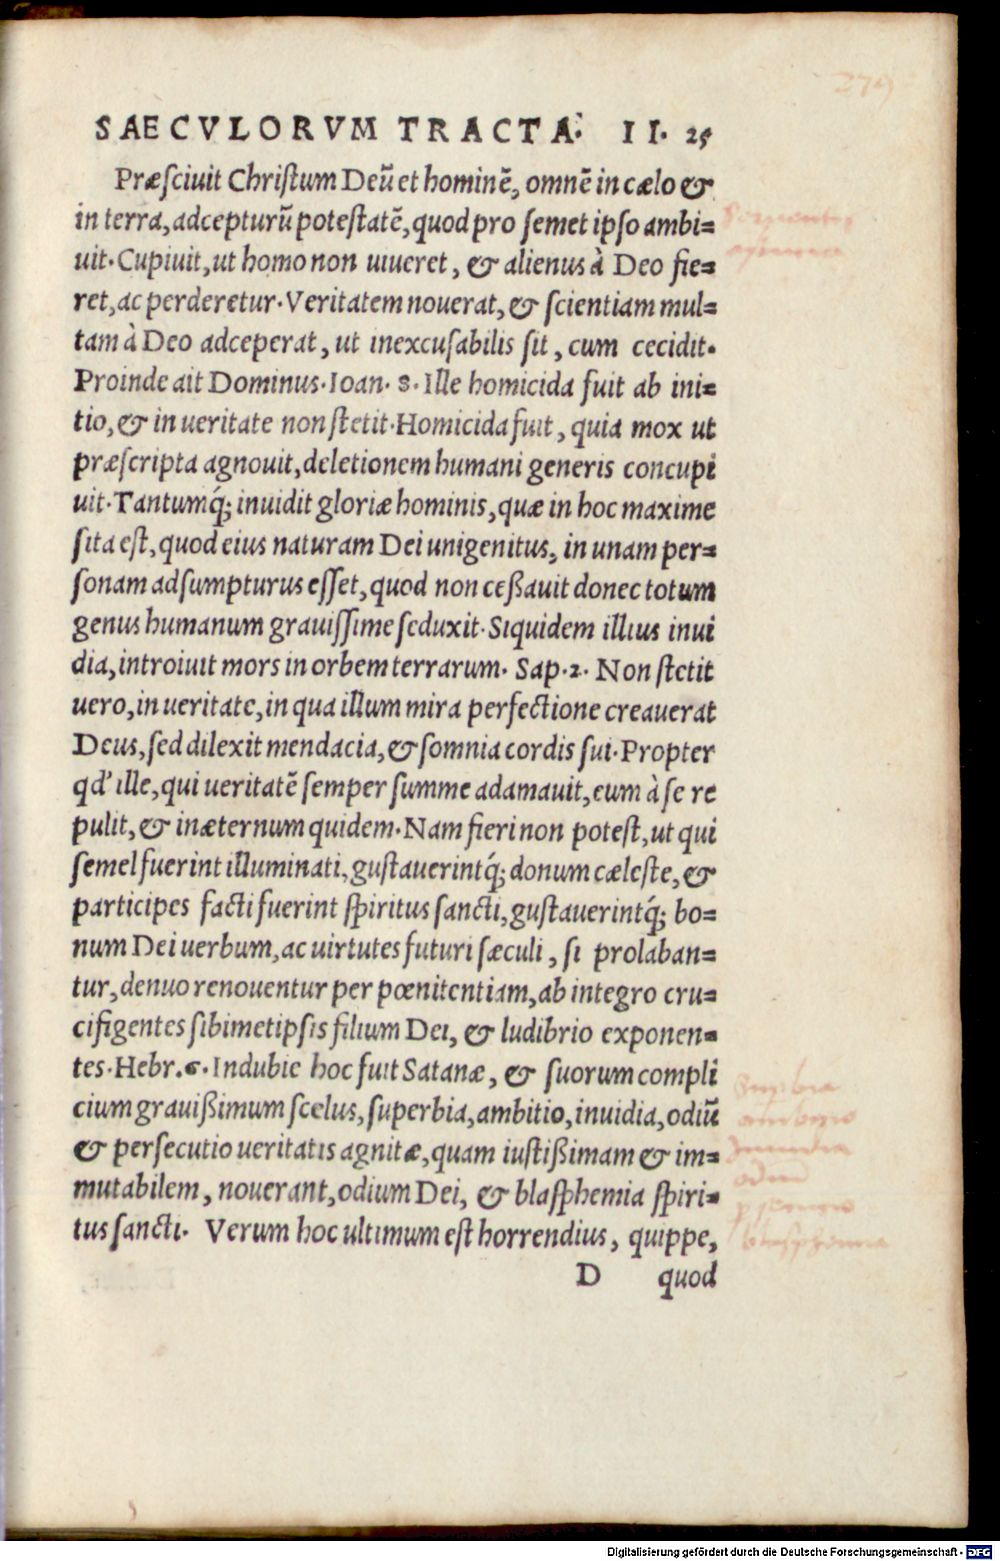 279
SAECVLORVM TRACTA: II. 25
Præſciuit Chriſtum Deũ et hominẽ, omnẽ in cælo &
in terra, adcepturũ poteſtatẽ, quod pro ſemet ipſo ambi=
uit. Cupiuit, ut homo non uiueret, & alienus à Deo fie=
ret, ac perderetur. Veritatem nouerat, & ſcientiam mul=
tam à Deo adceperat, ut inexcuſabilis ſit, cum cecidit.
Proinde ait Dominus. Ioan. 8. Ille homicida fuit ab ini=
tio, & in ueritate non ſtetit. Homicida fuit, quia mox ut
præſcripta agnouit, deletionem humani generis concupi
uit. Tantumq́; inuidit gloriæ hominis, quæ in hoc maxime
ſita eſt, quod eius naturam Dei unigenitus, in unam per=
ſonam adſumpturus eſſet, quod non ceßauit donec totum
genus humanum grauiſſime ſeduxit. Siquidem illius inui
dia, introiuit mors in orbem terrarum. Sap. 2. Non ſtetit
uero, in ueritate, in qua illum mira perfectione creauerat
Deus, ſed dilexit mendacia, & ſomnia cordis ſui. Propter
qd' ille, qui ueritatẽ ſemper ſumme adamauit, eum à ſe re
pulit, & in æternum quidem. Nam fieri non poteſt, ut qui
ſemel fuerint illuminati, guſtauerintq́; donum cæleſte, &
participes facti fuerint ſpiritus ſancti, guſtauerintq́; bo=
num Dei uerbum, ac uirtutes futuri ſæculi, ſi prolaban=
tur, denuo renouentur per pœnitentiam, ab integro cru=
cifigentes ſibimetipſis filium Dei, & ludibrio exponen=
tes. Hebr. 6. Indubie hoc fuit Satanæ, & ſuorum compli
cium grauißimum ſcelus, ſuperbia, ambitio, inuidia, odiũ
& perſecutio ueritatis agnitæ, quam iuſtißimam & im=
mutabilem, nouerant, odium Dei, & blaſphemia ſpiri=
tus ſancti. Verum hoc ultimum eſt horrendius, quippe,
D quod
Digitalisierung gefördert durch die Deutsche Forschungsgemeinschaft - DFG